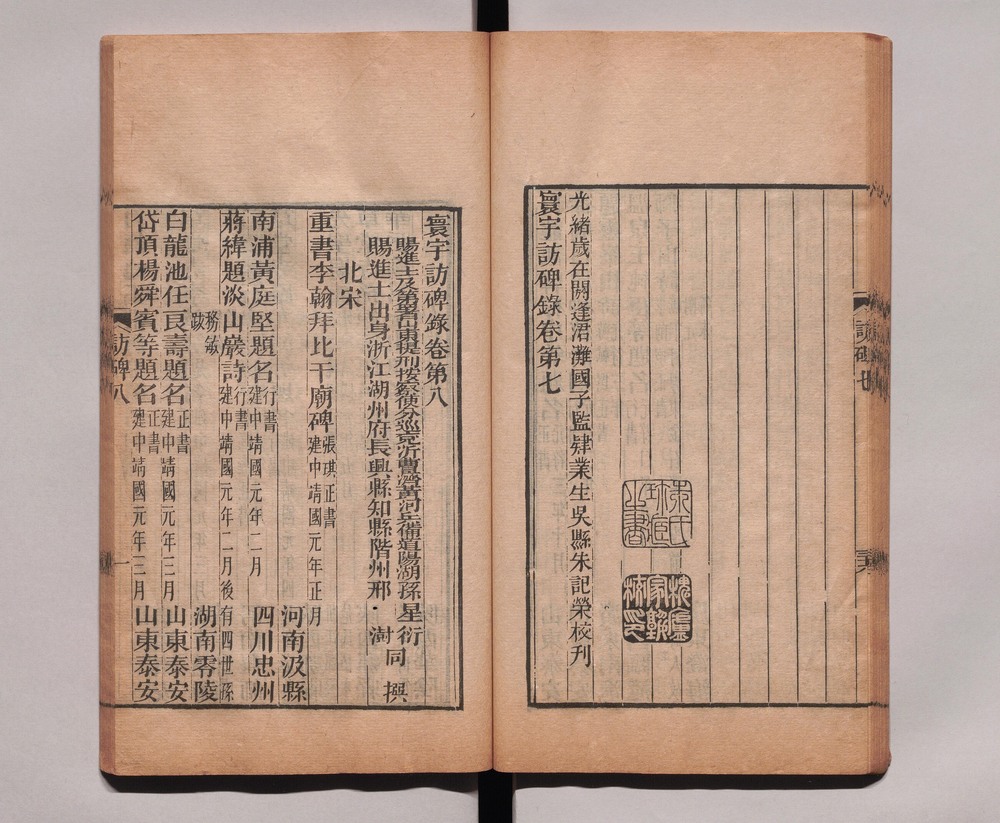 訪碑七
槐廬家塾校印
光緒歲在閼逢涒灘國子監肄業生吳縣朱記榮校刊
寰宇訪碑錄卷第七
寰宇訪碑錄卷第八
賜進士及第署山東提刑按察使分巡兗沂曹濟黃河兵備道陽湖孫星衍
賜進士出身浙江湖州府長興縣知縣階州邢澍
同撰
北宋
重書李翰拜比干廟碑 張琪正書 建中靖國元年正月 河南汲縣
南浦黃庭堅題名 行書 建中靖國元年二月 四川忠州
蔣緯題淡山巖詩 行書 建中靖國元年二月後有四世孫務敏跋 湖南零陵
白龍池任良壽題名 正書 建中靖國元年三月 山東泰安
岱頂楊舜賓等題名 正書 建中靖國元年三月 山東泰安
訪碑八 一